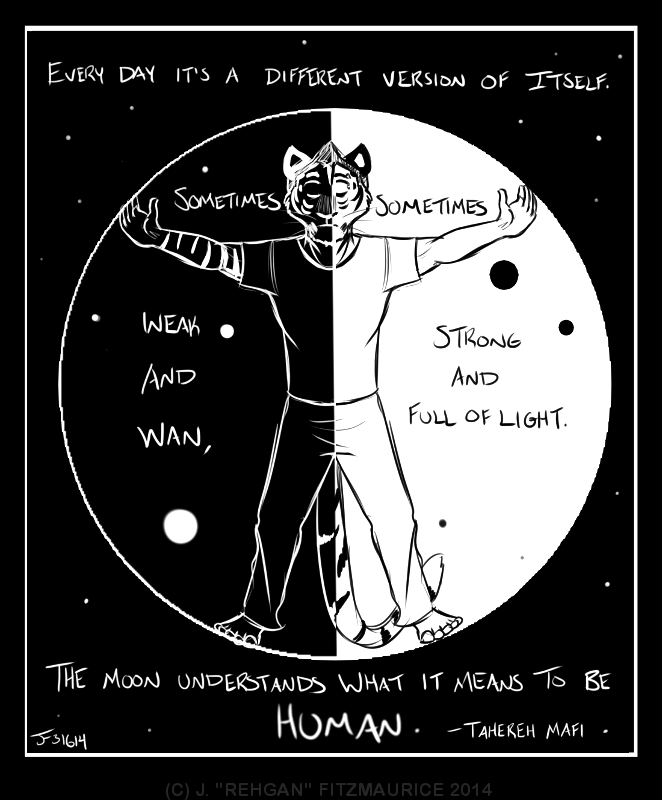 EVERY DAY IT'S A DIFFERENT VERSION OF ITSELF.
SOMETIMES
WEAK
AND
WAN,
SOMETIMES
STRONG
AND
FULL OF LIGHT.
THE MOON UNDERSTANDS WHAT IT MEANS TO BE
HUMAN.
—TAHEREH MAFI.
J-31614
(C) J. "REHGAN" FITZMAURICE 2014